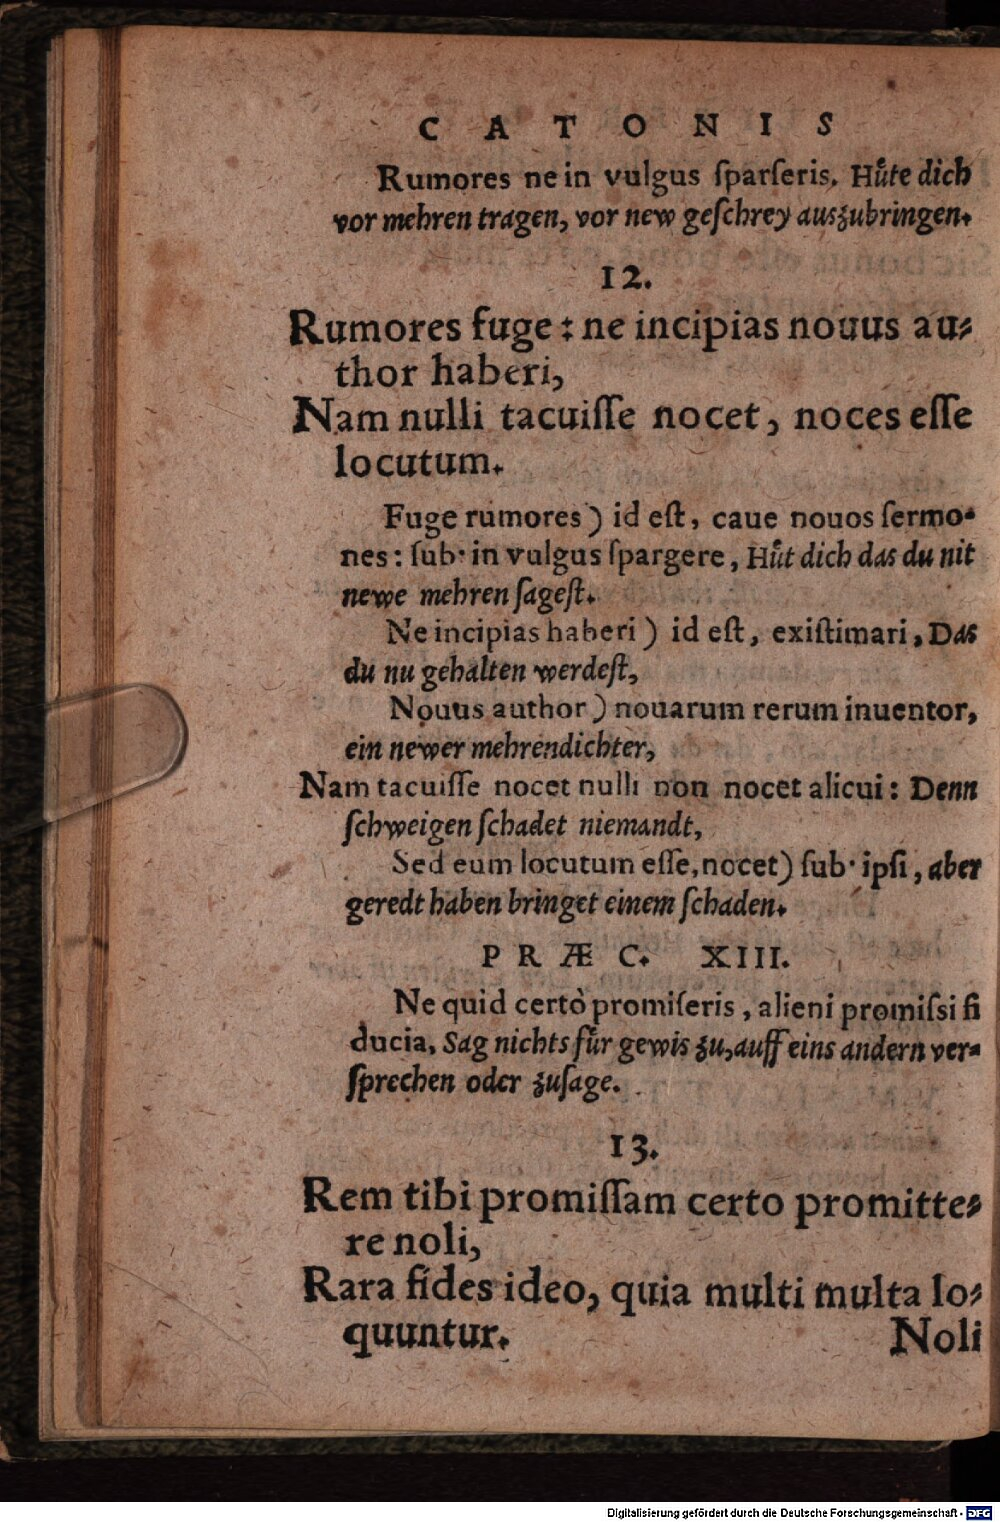 C A T O N I S
Rumores ne in vulgus ſparſeris. Huͤte dich
vor mehren tragen, vor new geſchrey auszubringen.
12.
Rumores fuge: ne incipias nouus au⸗
thor haberi,
Nam nulli tacuiſſe nocet, noces eſſe
locutum.
Fuge rumores) id eſt, caue nouos ſermo-
nes: ſub· in vulgus ſpargere, Huͤt dich das du nit
newe mehren ſageſt.
Ne incipias haberi) id eſt, exiſtimari, Das
du nu gehalten werdeſt,
Nouus author) nouarum rerum inuentor,
ein newer mehrendichter,
Nam tacuiſſe nocet nulli non nocet alicui: Denn
ſchweigen ſchadet niemandt,
Sed eum locutum eſſe, nocet) ſub· ipſi, aber
geredt haben bringet einem ſchaden.
P R Æ C. XIII.
Ne quid certò promiſeris, alieni promiſsi fi
ducia, Sag nichts fuͤr gewis zu, auff eins andern ver-
ſprechen oder zuſage.
13.
Rem tibi promiſſam certo promitte⸗
re noli,
Rara fides ideo, quia multi multa lo⸗
quuntur.
Noli
Digitalisierung gefördert durch die Deutsche Forschungsgemeinschaft - DFG